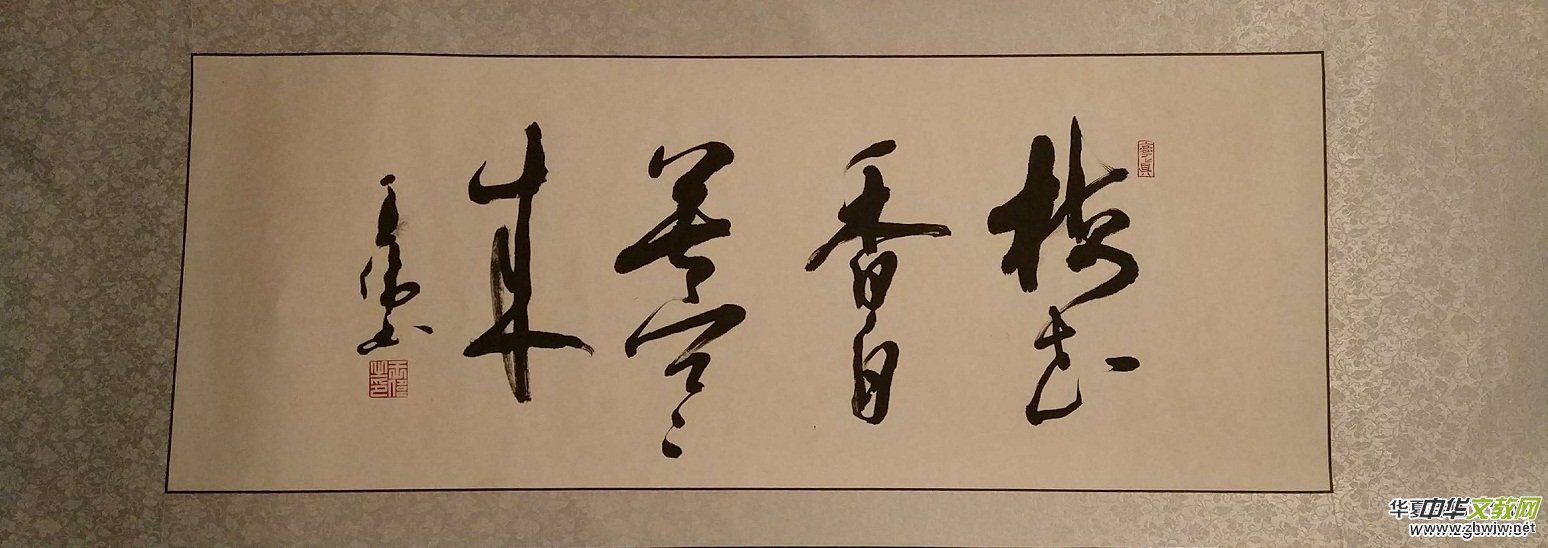 梅花
香自
苦寒
来
王伟书
华夏中华文教网
www.zhwjw.net